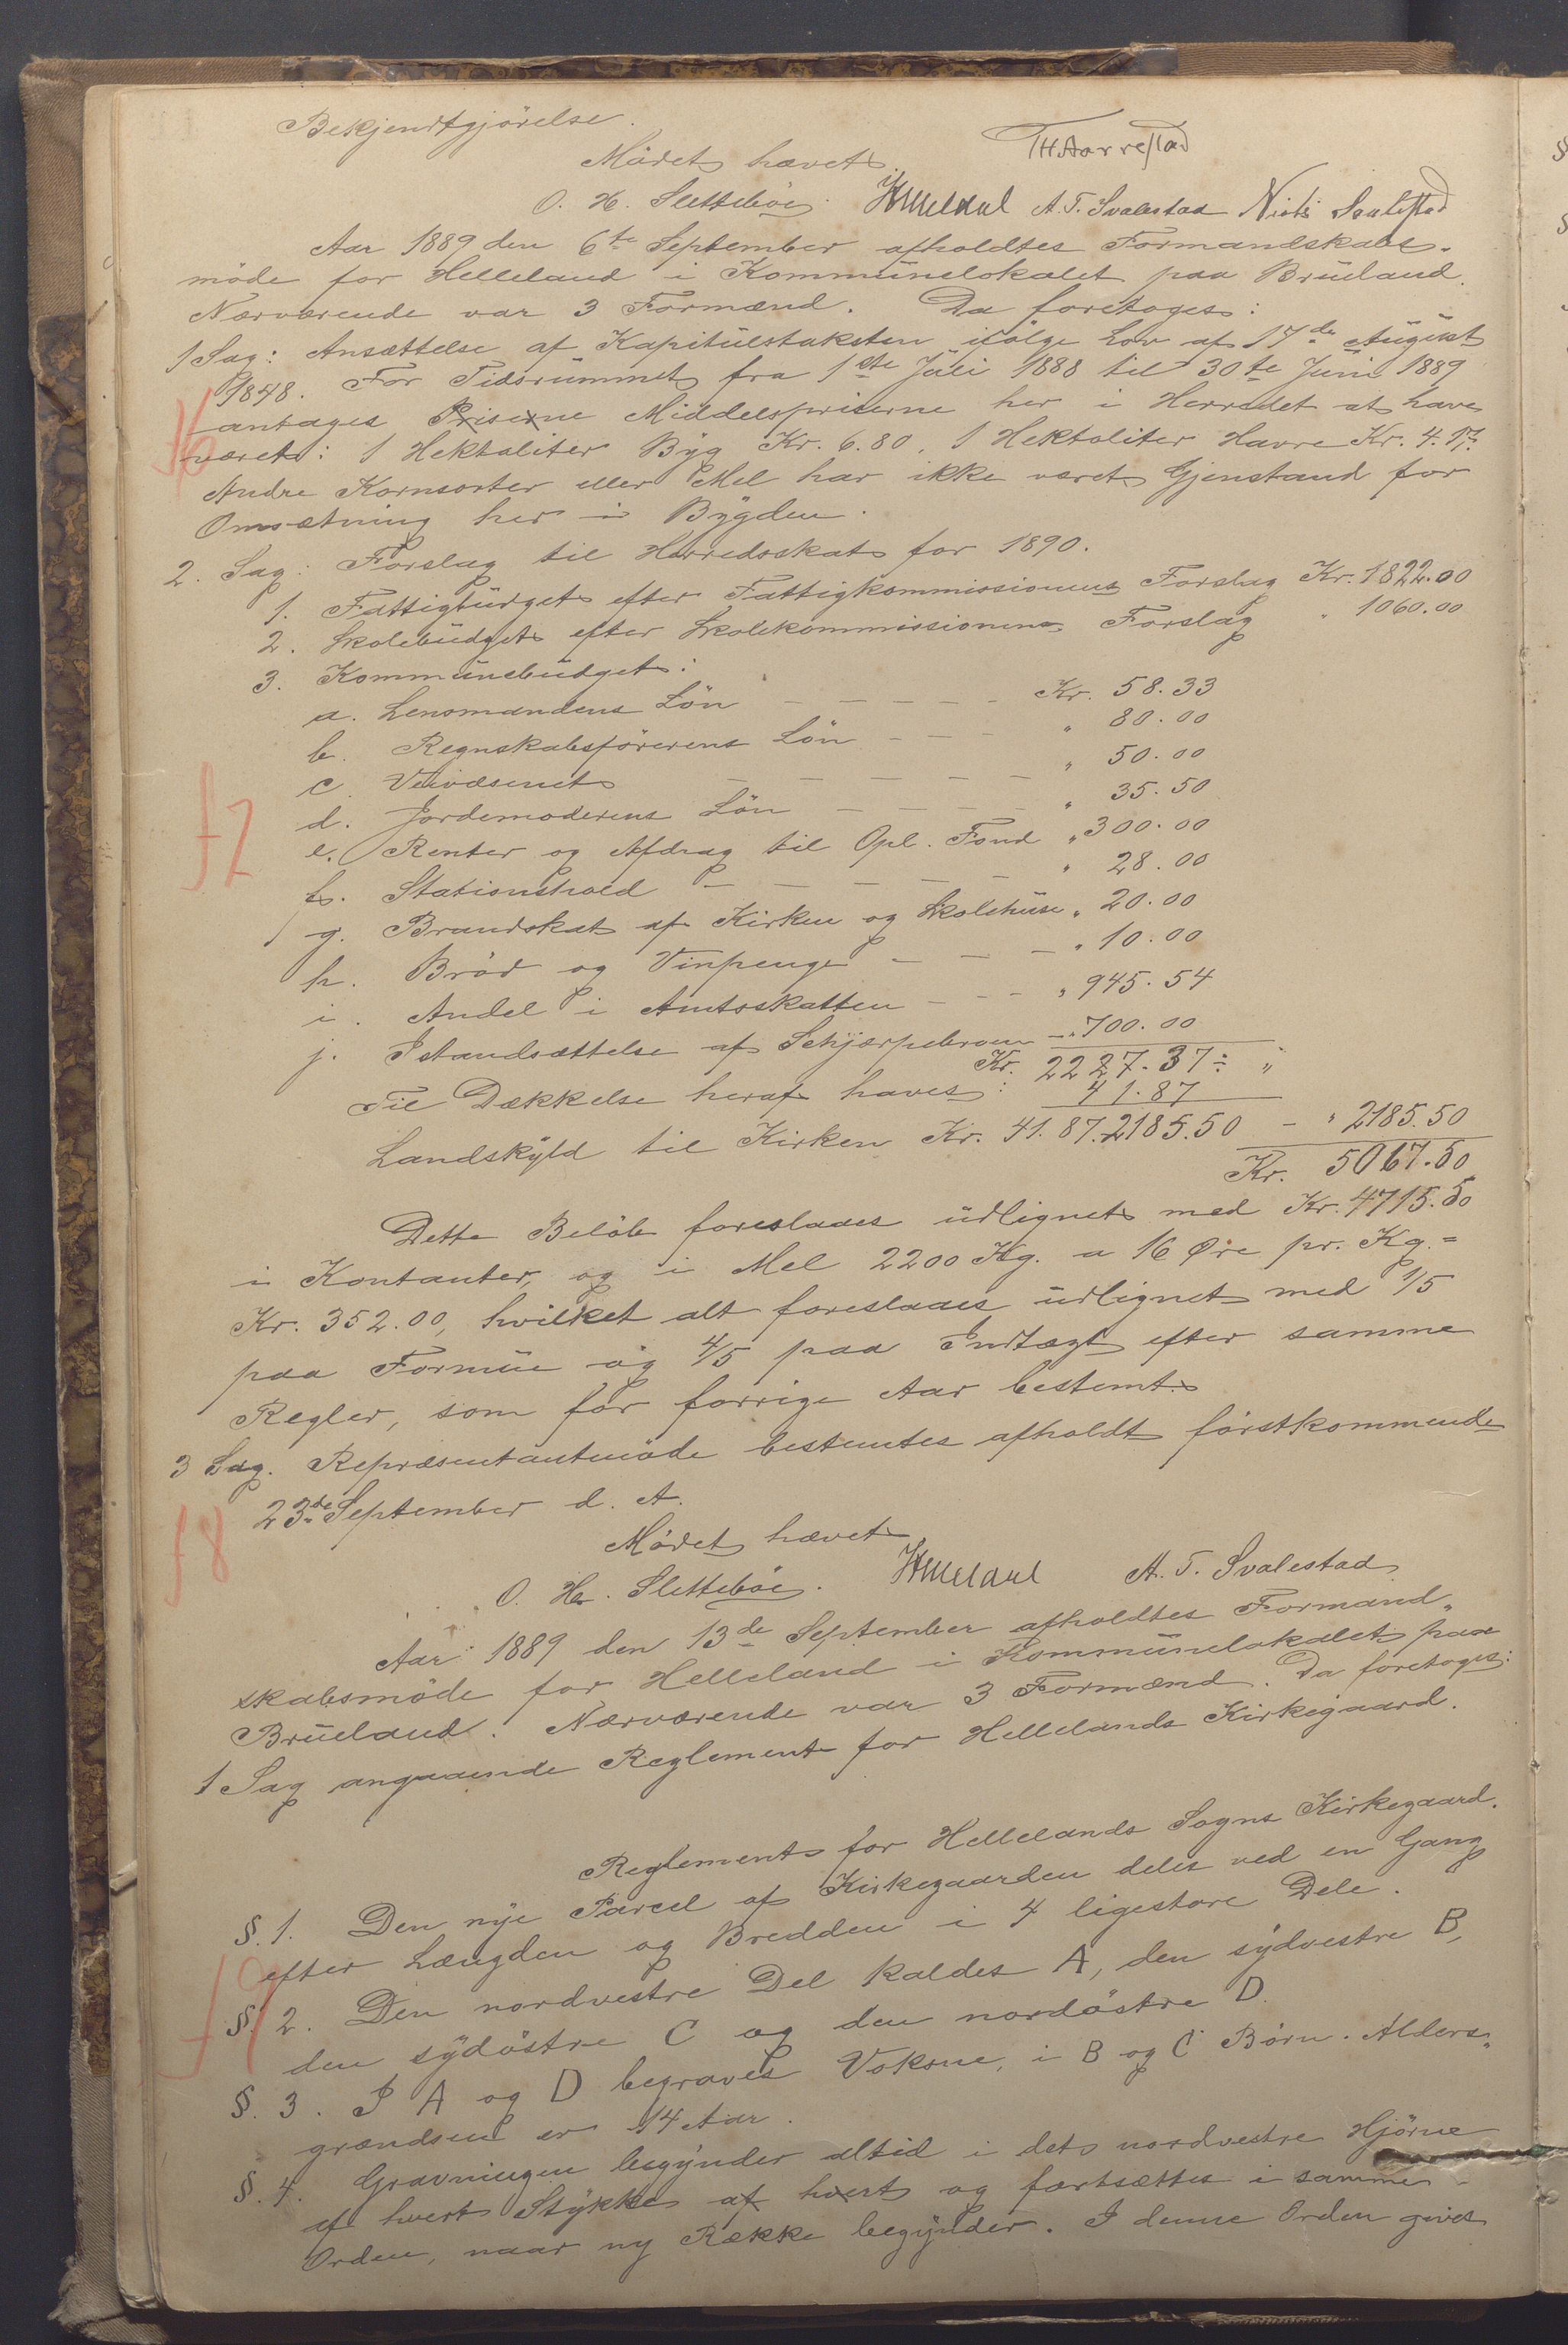 Bekjendtgjörelse.
Mödet hævet. TH Aarrestad
O. H. Slettebøe. A. T. Svalestad Niels Svalestad
Aar 1889 den 6te September afholdtes Formandskabs-
möde for Helleland i Kommunelokalet paa Brueland.
Nærværende var 3 Formænd. Da foretoges:
1 Sag: Ansættelse af Kapitulstaksten ifölge Lov af 17de August
1848. For Tidsrummet fra 1ste Juli 1888 til 30te Juni 1889
antages Priserne Middelspriserne her i Herredet at have
været: 1 Hektoliter Byg Kr. 6.80, 1 Hektoliter Havre Kr. 4.17.
Andre Kornsorter eller Mel har ikke været Gjenstand for
Omsætning her i Bygden.
2. Sag: Forslag til Herredsskat for 1890.
1. Fattigbudget efter Fattigkommissionens Forslag Kr. 1822.00
2. Skolebudget efter Skolekommissionens Forslag " 1060.00
3. Kommunebudget:
a. Lensmandens Lön - - - - - Kr. 58.33
b. Regnskabsförerens Lön - - - " 80.00
c. Veivæsenet - - - - - " 50.00
d. Jordemoderens Lön - - - - " 35.50
e. Renter og Afdrag til Opl. Fond " 300.00
f. Stationshold - - - - - " 28.00
g. Brandskat af Kirken og Skolehuse " 20.00
h. Bröd og Vinpenge - - - " 10.00
i. Andel i Amtsskatten - - - " 945.54
j. Istandsættelse af Schjærpebroen - " 700.00
Kr. 2227.37 "
Til Dækkelse heraf haves: 41.87
Landskyld til Kirken Kr. 41.87. 2185.50 - " 2185.50
Kr. 5067.50
Dette Belöb foreslaaes udlignet med Kr. 4715.50
i Kontanter, og i Mel 2200 Kg. a 16 Øre pr. Kg. =
Kr. 352.00, hvilket alt foreslaaes udlignet med 1/5
paa Formue og 4/5 paa Indtægt efter samme
Regler, som for forrige Aar bestemt.
3 Sag. Repræsentantmöde bestemtes afholdt förstkommende
23de September d. A.
Mödet hævet
O. H. Slettebøe. A. T. Svalestad
Aar 1889 den 13de September afholdtes Formand-
skabsmöde for Helleland i Kommunelokalet paa
Brueland. Nærværende var 3 Formænd. Da foretoges:
1 Sag angaaende Reglement for Hellelands Kirkegaard.
Reglement for Hellelands Sogns Kirkegaard.
§. 1. Den nye Parcel af Kirkegaarden deles ved en Gang
efter Længden og Bredden i 4 ligestore Dele.
§. 2. Den nordvestre Del kaldes A, den sydvestre B,
den sydöstre C og den nordöstre D.
§. 3. I A og D begraves Voksne, i B og C Börn. Alders-
grændsen er 14 Aar.
§. 4. Gravningen begynder altid i det nordvestre Hjörne
af hvert Stykke af hvert og fortsættes i samme
Orden, naar ny Række begynder. I denne Orden gives
f6
f7
f8
f9